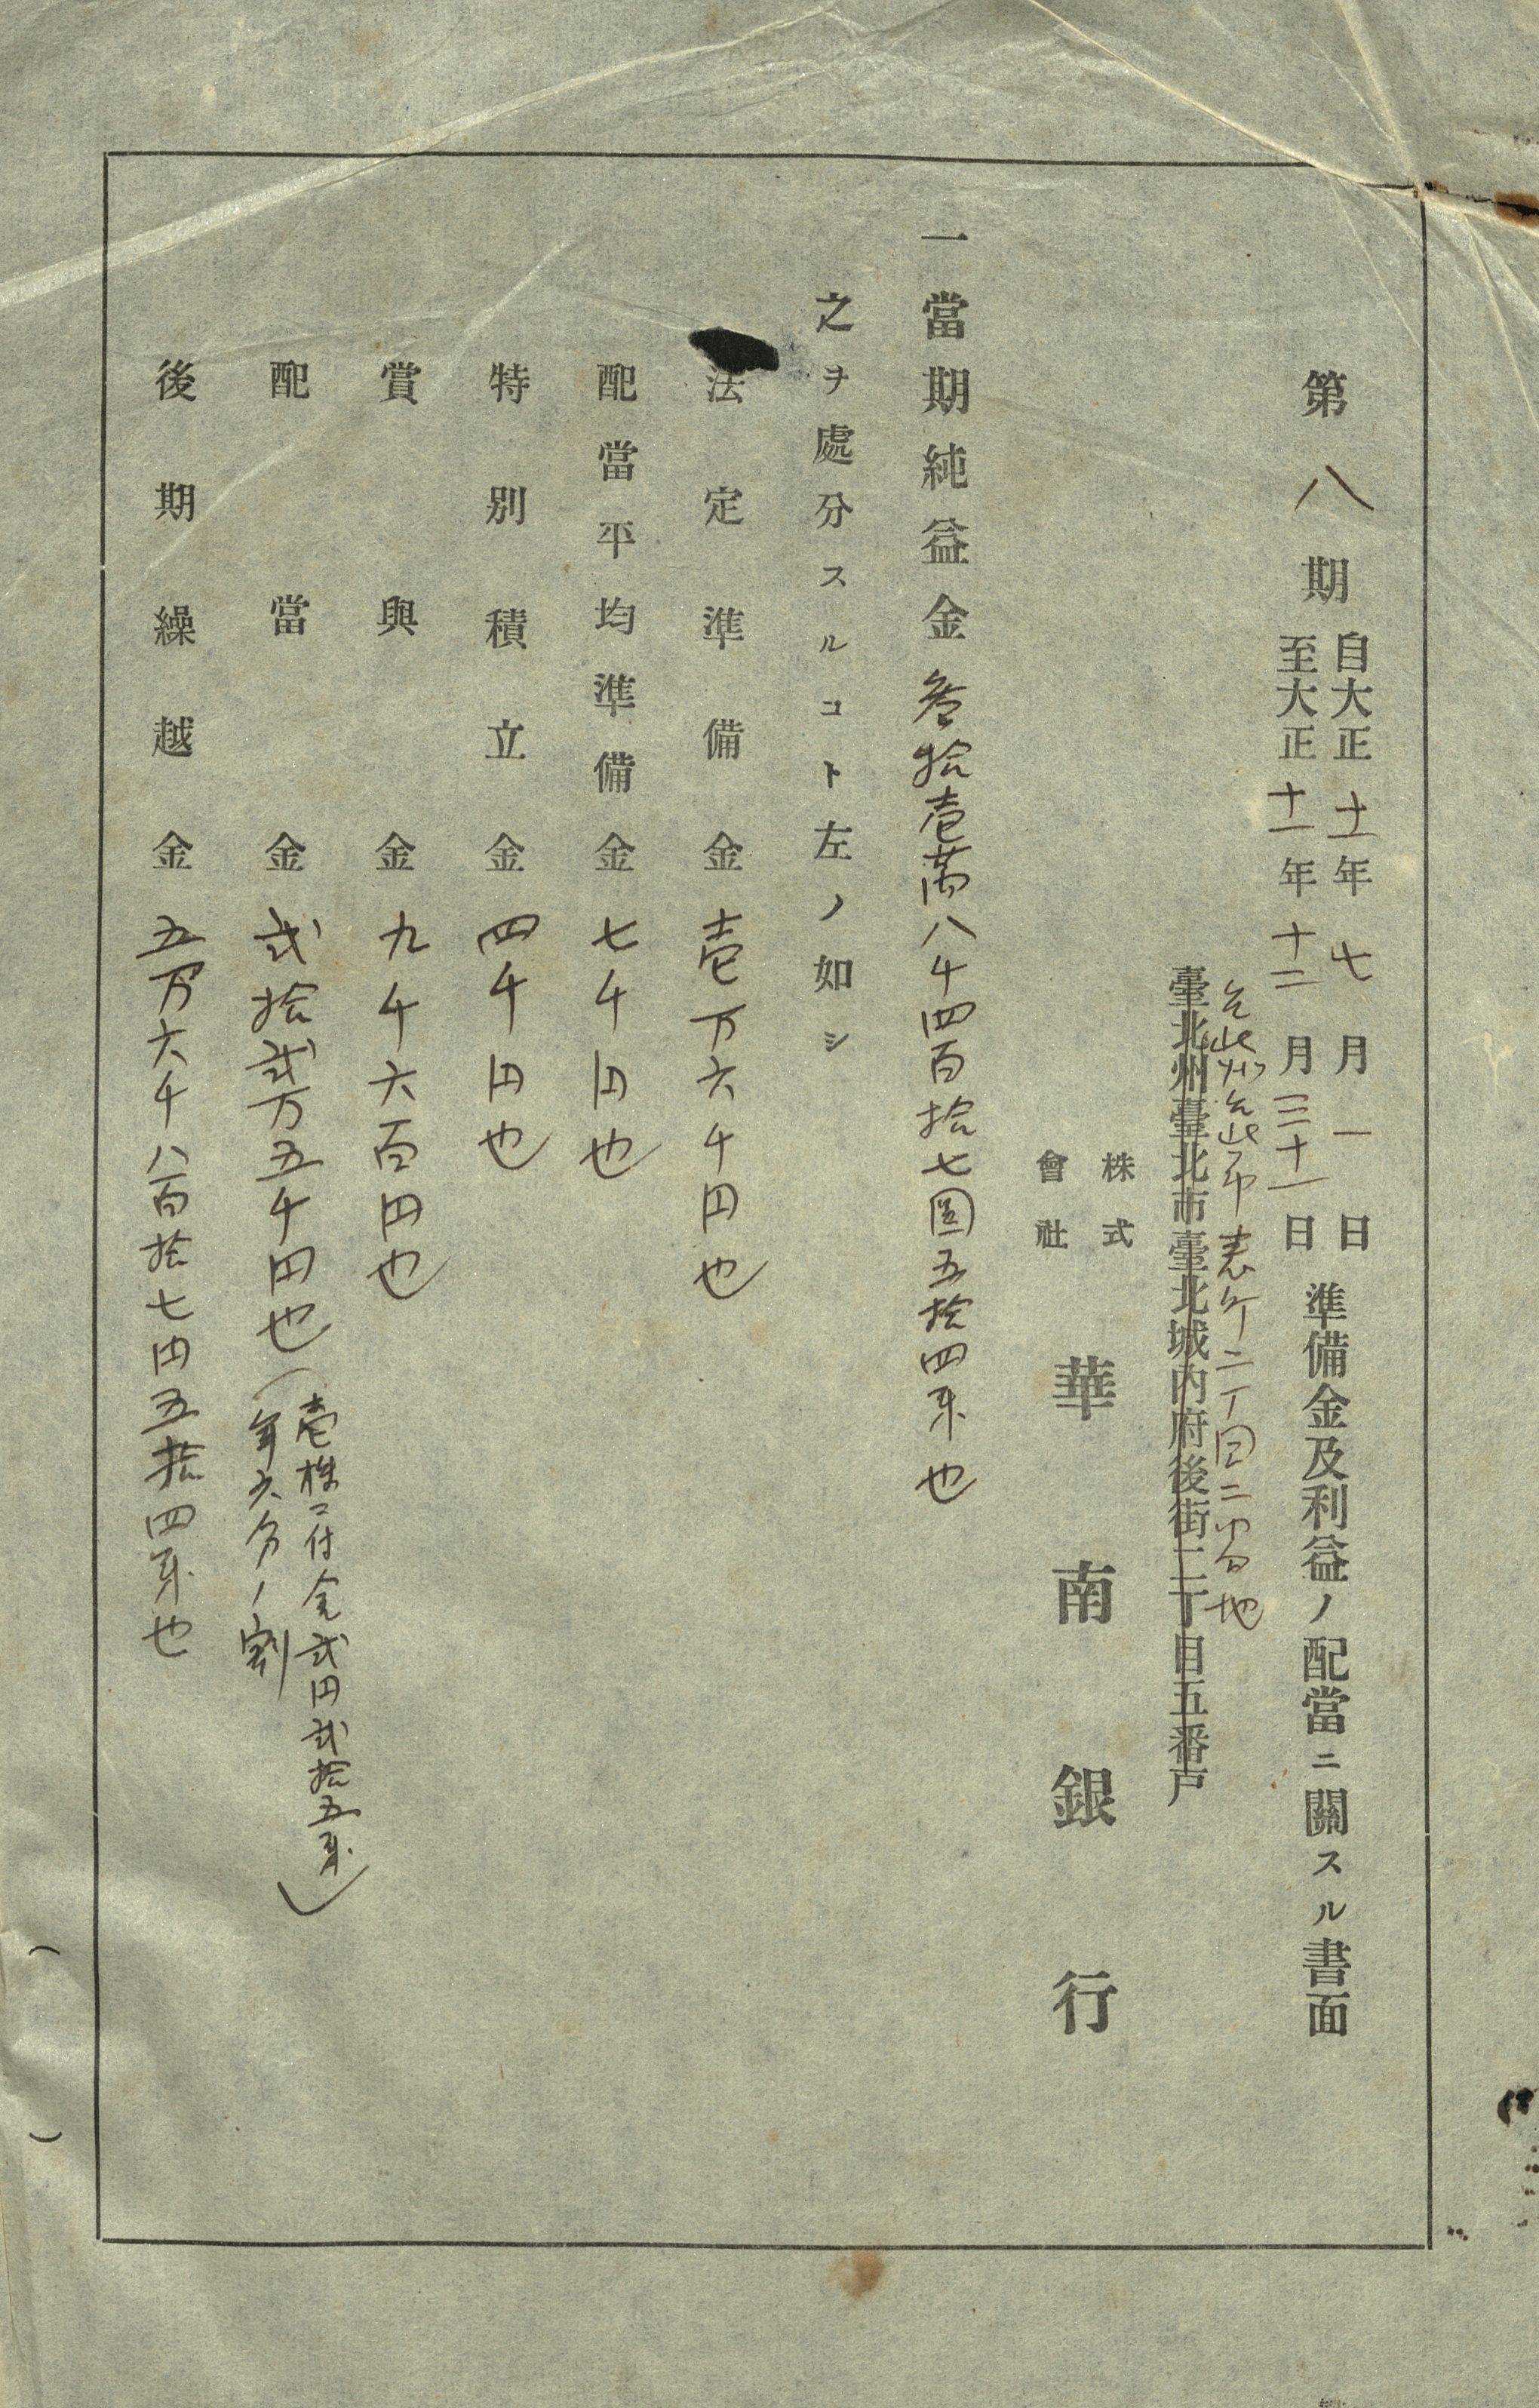 第八期
自大正十一年七月一日
至大正十一年十二月三十一日
準備金及利益ノ配當ニ關スル書面
台北州台北市表町二丁目二番地
臺北州臺北市臺北城内府後街二丁目五番戸
株式
會社
華南銀行
一當期純益金參拾壱萬八千四百拾七圓五拾四銭也
之ヲ處分スルコト左ノ如シ
法定準備金壱万六千円也
配當平均準備金七千円也
特別積立金四千円也
賞與金九千六百円也
配當金弐拾弐万五千円也
(壱株ニ付金弐円弐拾五銭
年六分ノ割)
後期繰越金五万六千八百拾七円五拾四銭也
( )